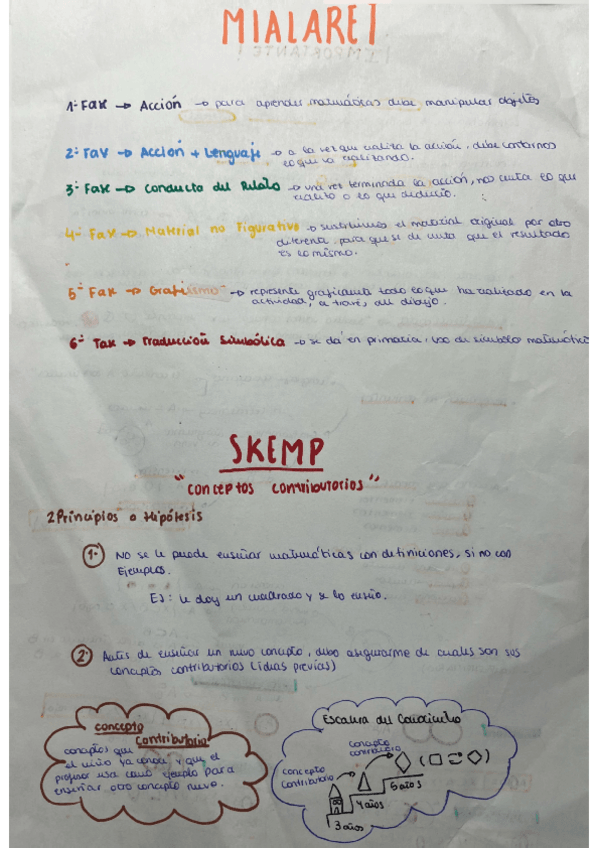 MIALARET
1ª Fase → Acción → para aprender matemáticas debe manipular objetos
2ª Fase → Acción + Lenguaje → a la vez que realiza la acción, debe contarnos
lo que va realizando.
3ª Fase → Conducta del Relato → una vez terminada la acción, nos cuenta lo que
realizó o lo que dedució.
4ª Fase → Material no Figurativo → sustituimos el material original por otro
diferente, para que se de cuenta que el resultado
es lo mismo.
5ª Fase → Grafismo → represente graficamente todo lo que ha realizado en la
actividad, a través del dibujo.
6ª Fase → Traducción Simbólica → se da en primaria, uso de símbolo matemático
SKEMP
"conceptos contributorios"
2 Principios o Hipótesis
1. No se le puede enseñar matemáticas con definiciones, si no con
Ejemplos.
EJ: le doy un cuadrado y se lo enseño.
2. Antes de enseñar un nuevo concepto, debo asegurarme de cuales son sus
conceptos contributorios (ideas previas)
concepto
contributorio
conceptos que
el niño ya conoce y que el
profesor usa como ejemplo para
enseñar otro concepto nuevo.
Escalera del Conocimiento
concepto
contributorio
concepto
contributorio
5 años
4 años
3 años